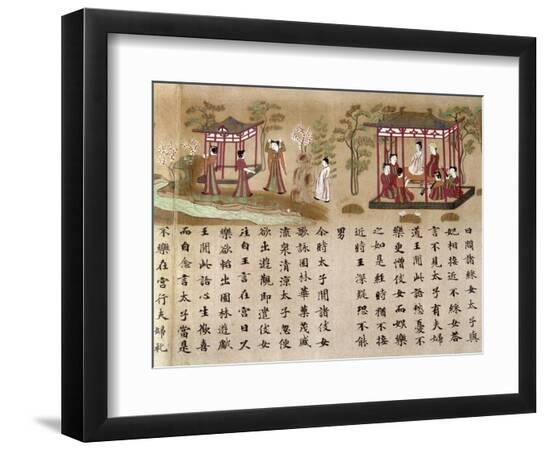 曰問諸婇女太子與
妃相接近不婇女答
言不見太子有夫婦
道王聞此語愁憂不
樂更增伎女而娛樂
之如是經時猶不接
近時王深疑恐不能
男
尒時太子聞諸伎女
歌詠園林華菓茂盛
流泉清涼太子忽便
欲出遊觀即遣伎女
往白王言在宮日久
樂欲暫出園林遊戲
王聞此語心生歡喜
而自念言太子當是
不樂在宮行夫婦礼